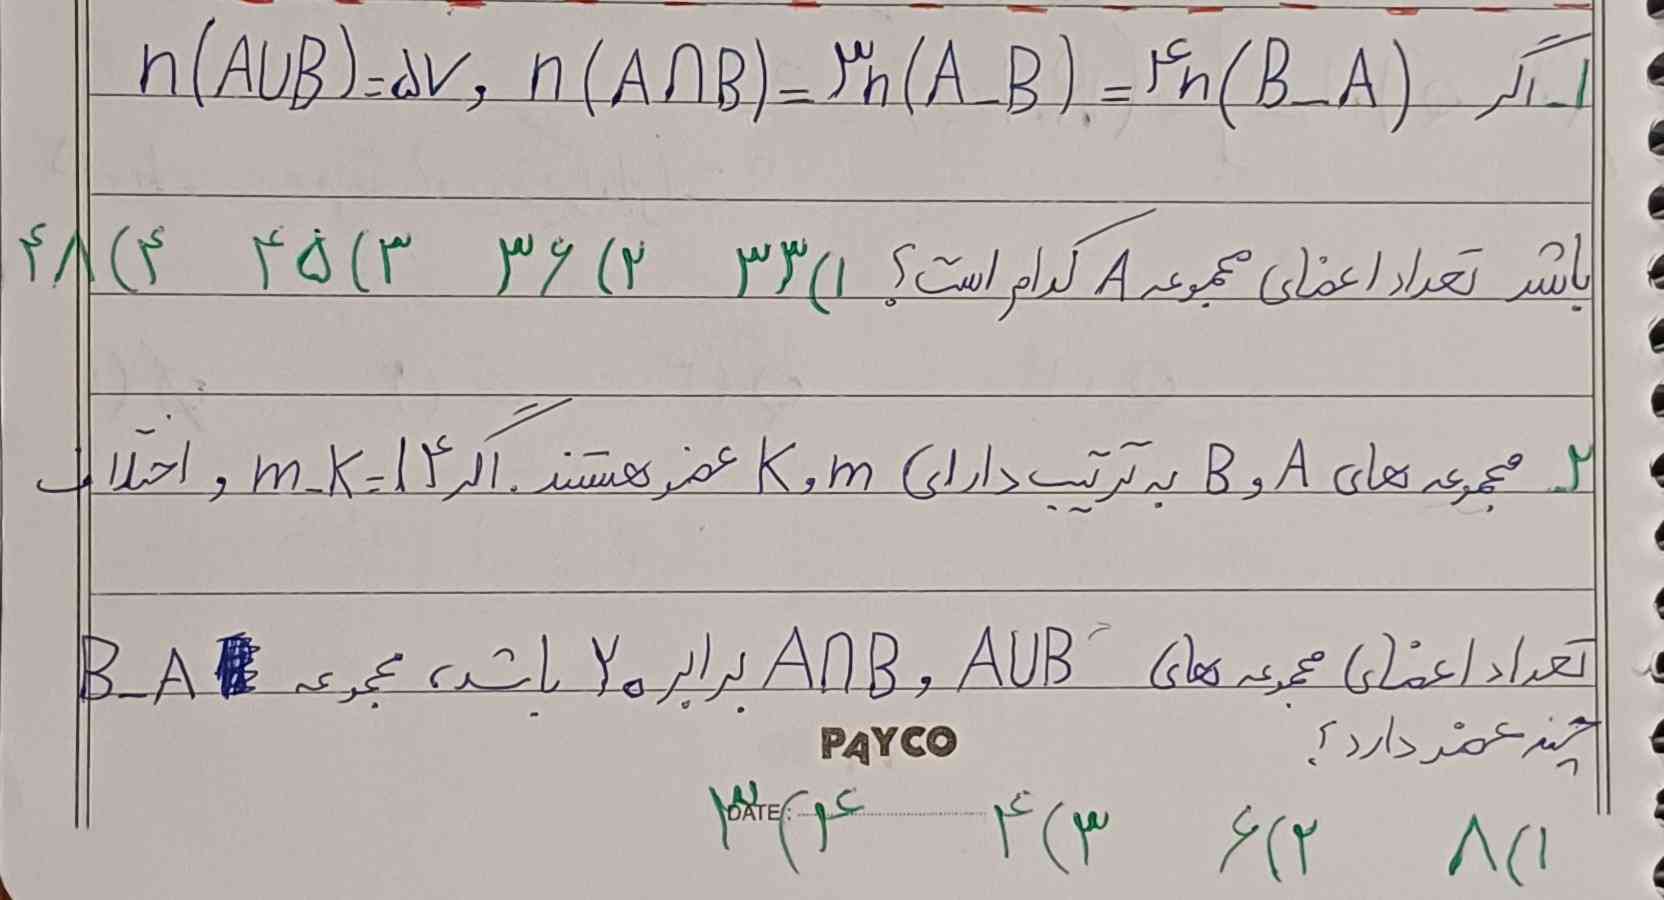 ۱_ اگر n(A∪B)=۵۷, n(A∩B)=۳n(A_B)=۴n(B_A)
باشد تعداد اعضای مجموعه A کدام است؟ ۱)۳۳ ۲)۳۶ ۳)۴۵ ۴)۴۸
۲_ مجموعه های A و B به ترتیب دارای m و K عضو هستند. اگر m_K=۱۴ و اختلاف
تعداد اعضای مجموعه های A∪B و A∩B برابر ۲۰ باشد، مجموعه B_A
چند عضو دارد؟
PAYCO
DATE:
۱)۸ ۲)۶ ۳)۴ ۴)۳